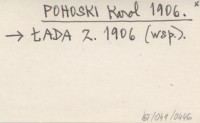 POHOSKI Karol 1906. x
→ ŁADA Z. 1906 (wsp.).
67/044/0446